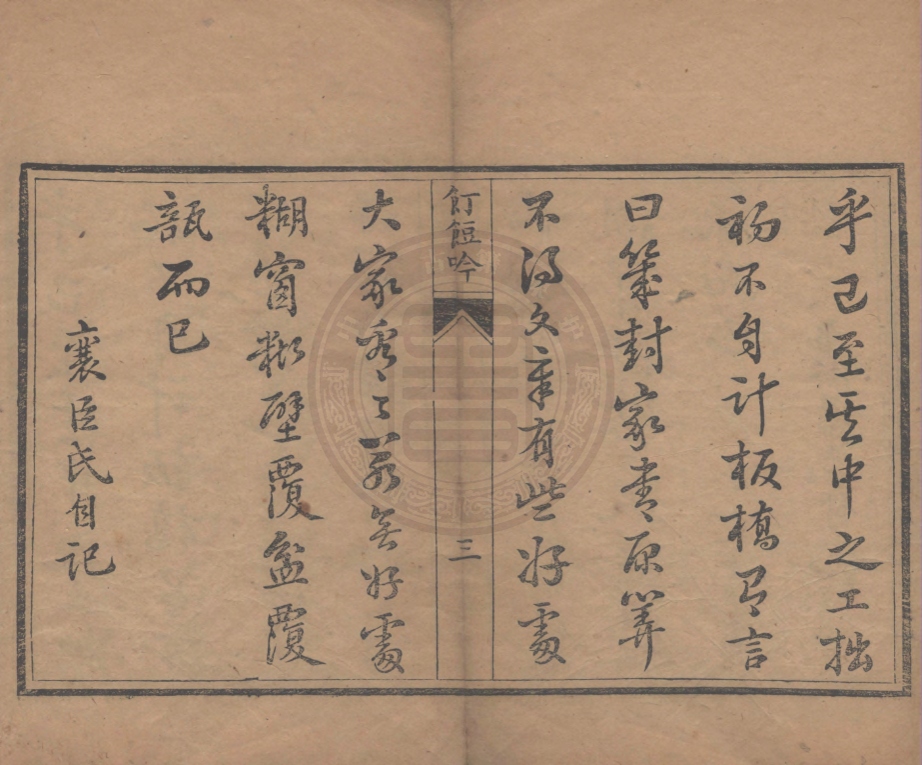 乎己至其中之工拙
初不自計板橋有言
曰幾封家書原算
不得文章有些好處
飣餖吟
三
大家看〻若無好處
糊窗糊壁覆盆覆
瓿而已
襄臣氏自記